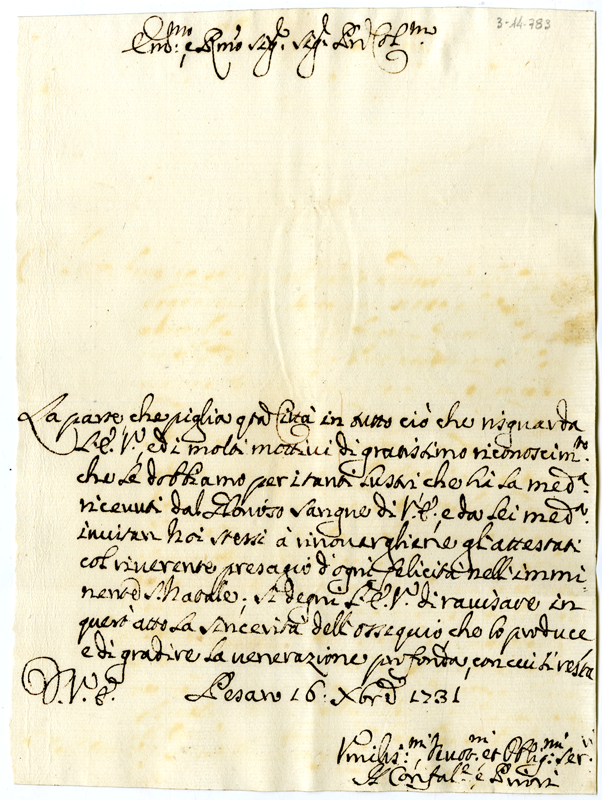 3-14-783
Em:mo e Rmo Sigr. Sigr. Pne Colmo
La parte che piglia qsta Città in tutto ciò che risguarda
l'E. V., ed i molti mottivi di gratissimo riconoscim:to
che le dobbiamo per i tanti lustri che hà la med:a
ricevuti dal glorioso sangue di V. E., e da lei med:a
invitan noi stessi à rinovargliene gl'attestati
col riverente presagio d'ogni felicità nell'immi-
nente S. Natale; si degni l'E. V. di ravisare in
quest'atto la sincerità dell'ossequio, che lo produce
e di gradire la venerazione profonda, con cui si resta
D. V. E. Pesaro 16 Xbre 1731
Vmilis:mi Devot:mi et Oblig:mi Ser:ri
Il Confal:e e Priori